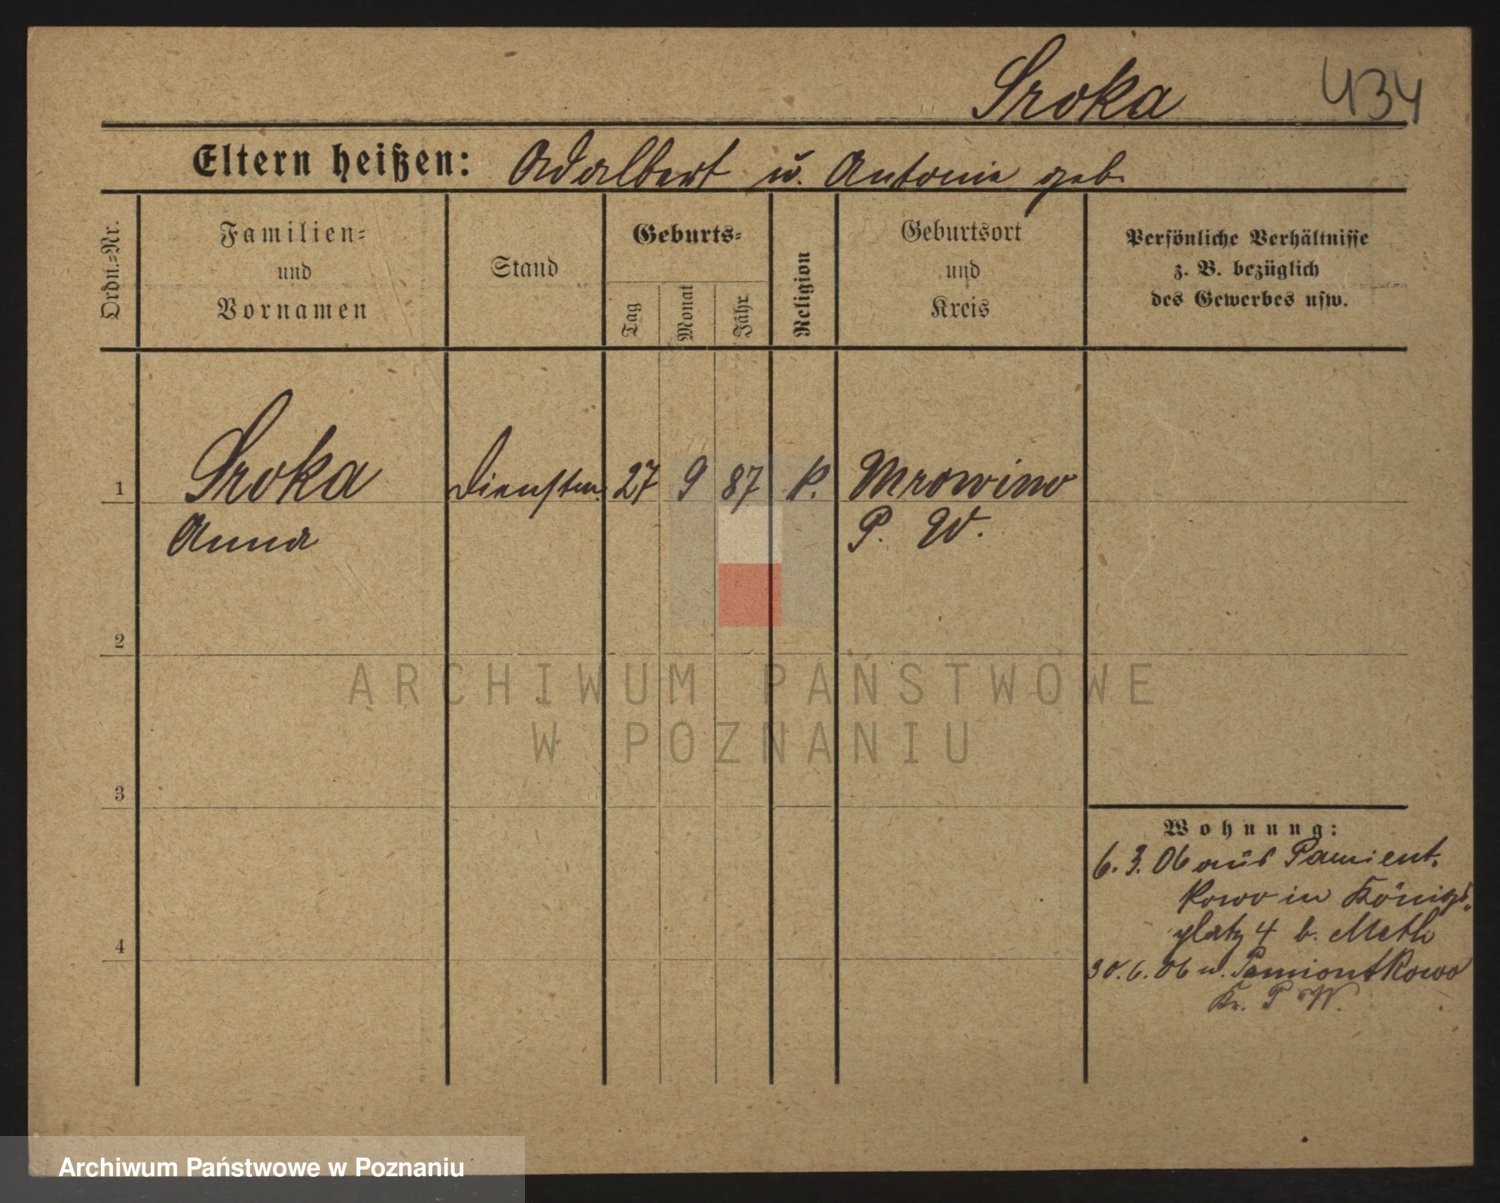 Sroka 434
Eltern heißen: Adalbert u. Antonie geb.
Ordn.-Nr.
Familien-
und
Vornamen
Stand
Geburts-
Tag
Monat
Jahr
Religion
Geburtsort
und
Kreis
Persönliche Verhältnisse
z. B. bezüglich
des Gewerbes usw.
1 Sroka Dienstm. 27 9 87 k. Mrowino
Anna P. W.
2
3
4
Wohnung:
6.3.06 aus Pamient-
kowo in Königs-
platz 4 b. Meth
30.6.06 n. Pamiontkowo
Kr. P W.
ARCHIWUM PAŃSTWOWE
W POZNANIU
Archiwum Państwowe w Poznaniu